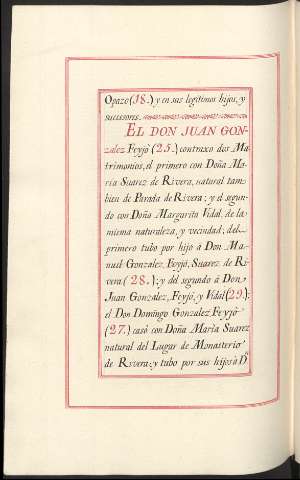 Opazo (18.) y en sus legitimos hijos, y
sucessores.
EL DON JUAN GON-
zalez Feyjò (25.) contraxo dos Ma-
trimonios, el primero con Doña Ma-
ria Suarez de Rivera, natural tam-
bien de Parada de Rivera; y el segun-
do con Doña Margarita Vidal, de la
misma naturaleza, y vecindad; del
primero tubo por hijo â Don Ma-
nuel Gonzalez, Feyjò, Suarez de Ri-
vera (28.); y del segundo â Don
Juan Gonzalez, Feyjò, y Vidal (29.):
el Don Domingo Gonzalez Feyjò
(27.) casò con Doña Maria Suarez
natural del Lugar de Monasterio
de Rivera; y tubo por sus hijos â Dⁿ